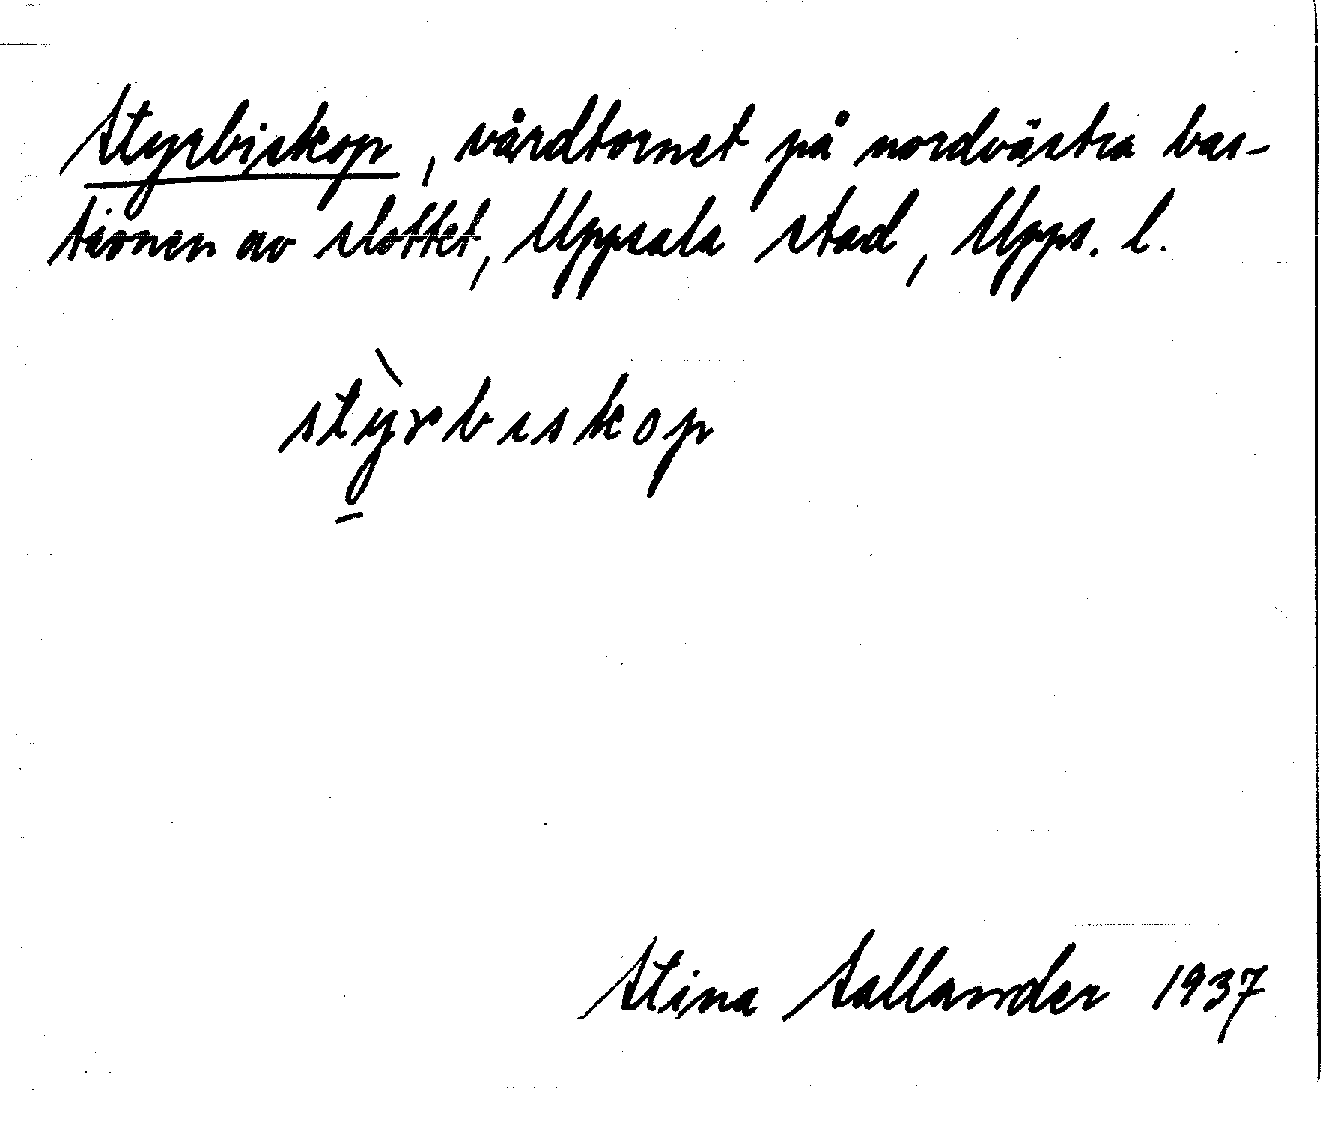 Styrbiskop, vårdtornet på nordvästra bas-
tionen av slottet, Uppsala stad, Upps. l.
stỳ̱rbɪskop
Stina Sallander 1937